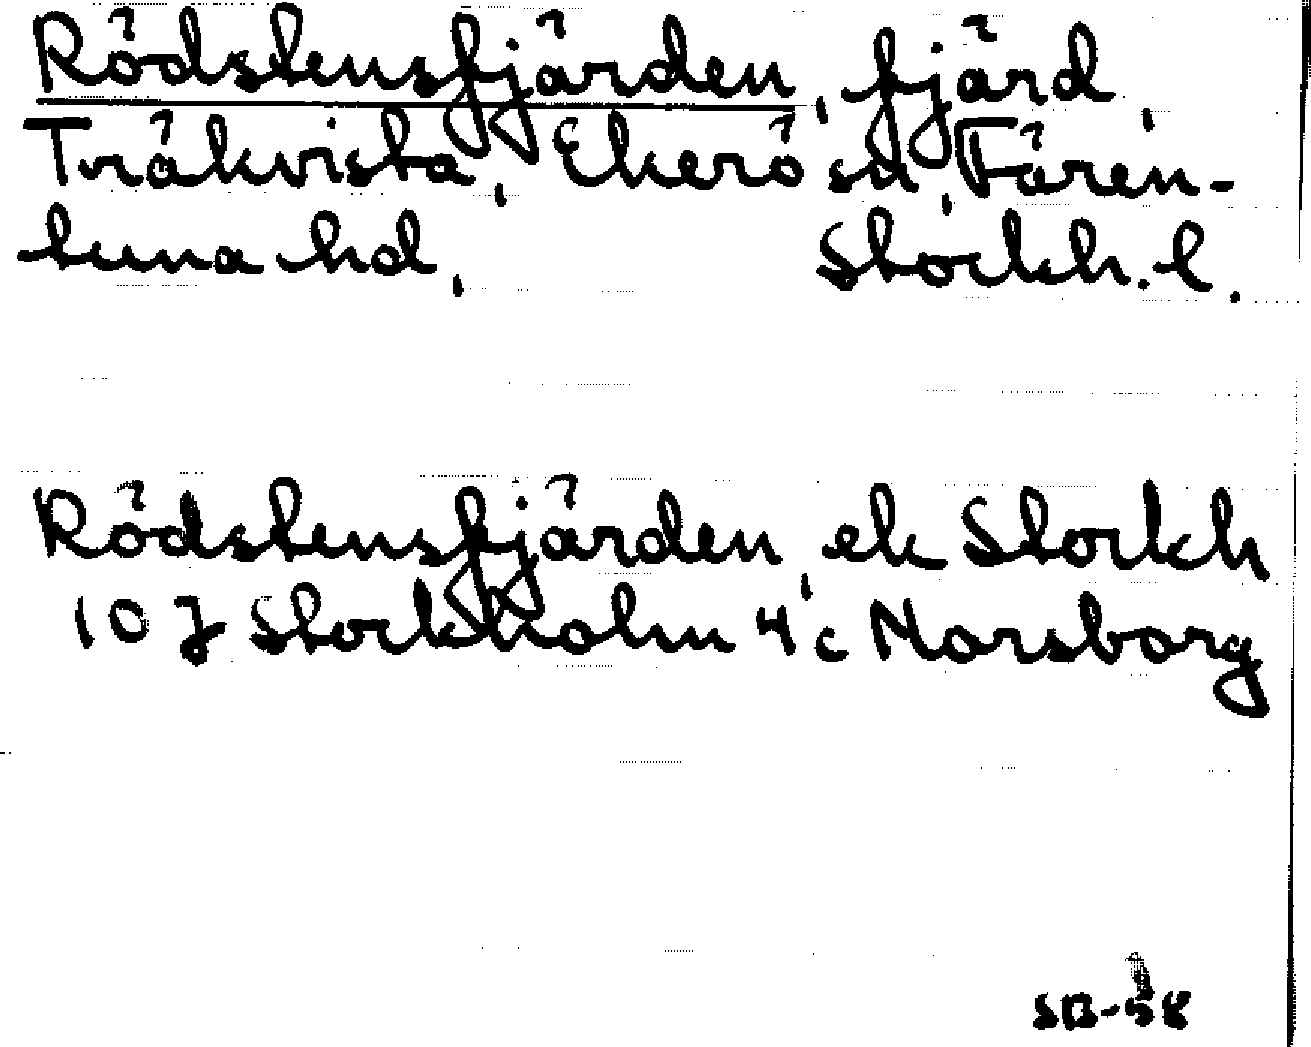 Rödstensfjärden, fjärd,
Träkvista, Ekerö sn, Fären-
tuna hd, Stockh. l.
Rödstensfjärden, ek Stockh
10 J Stockholm 4 c Norsborg
SB-58